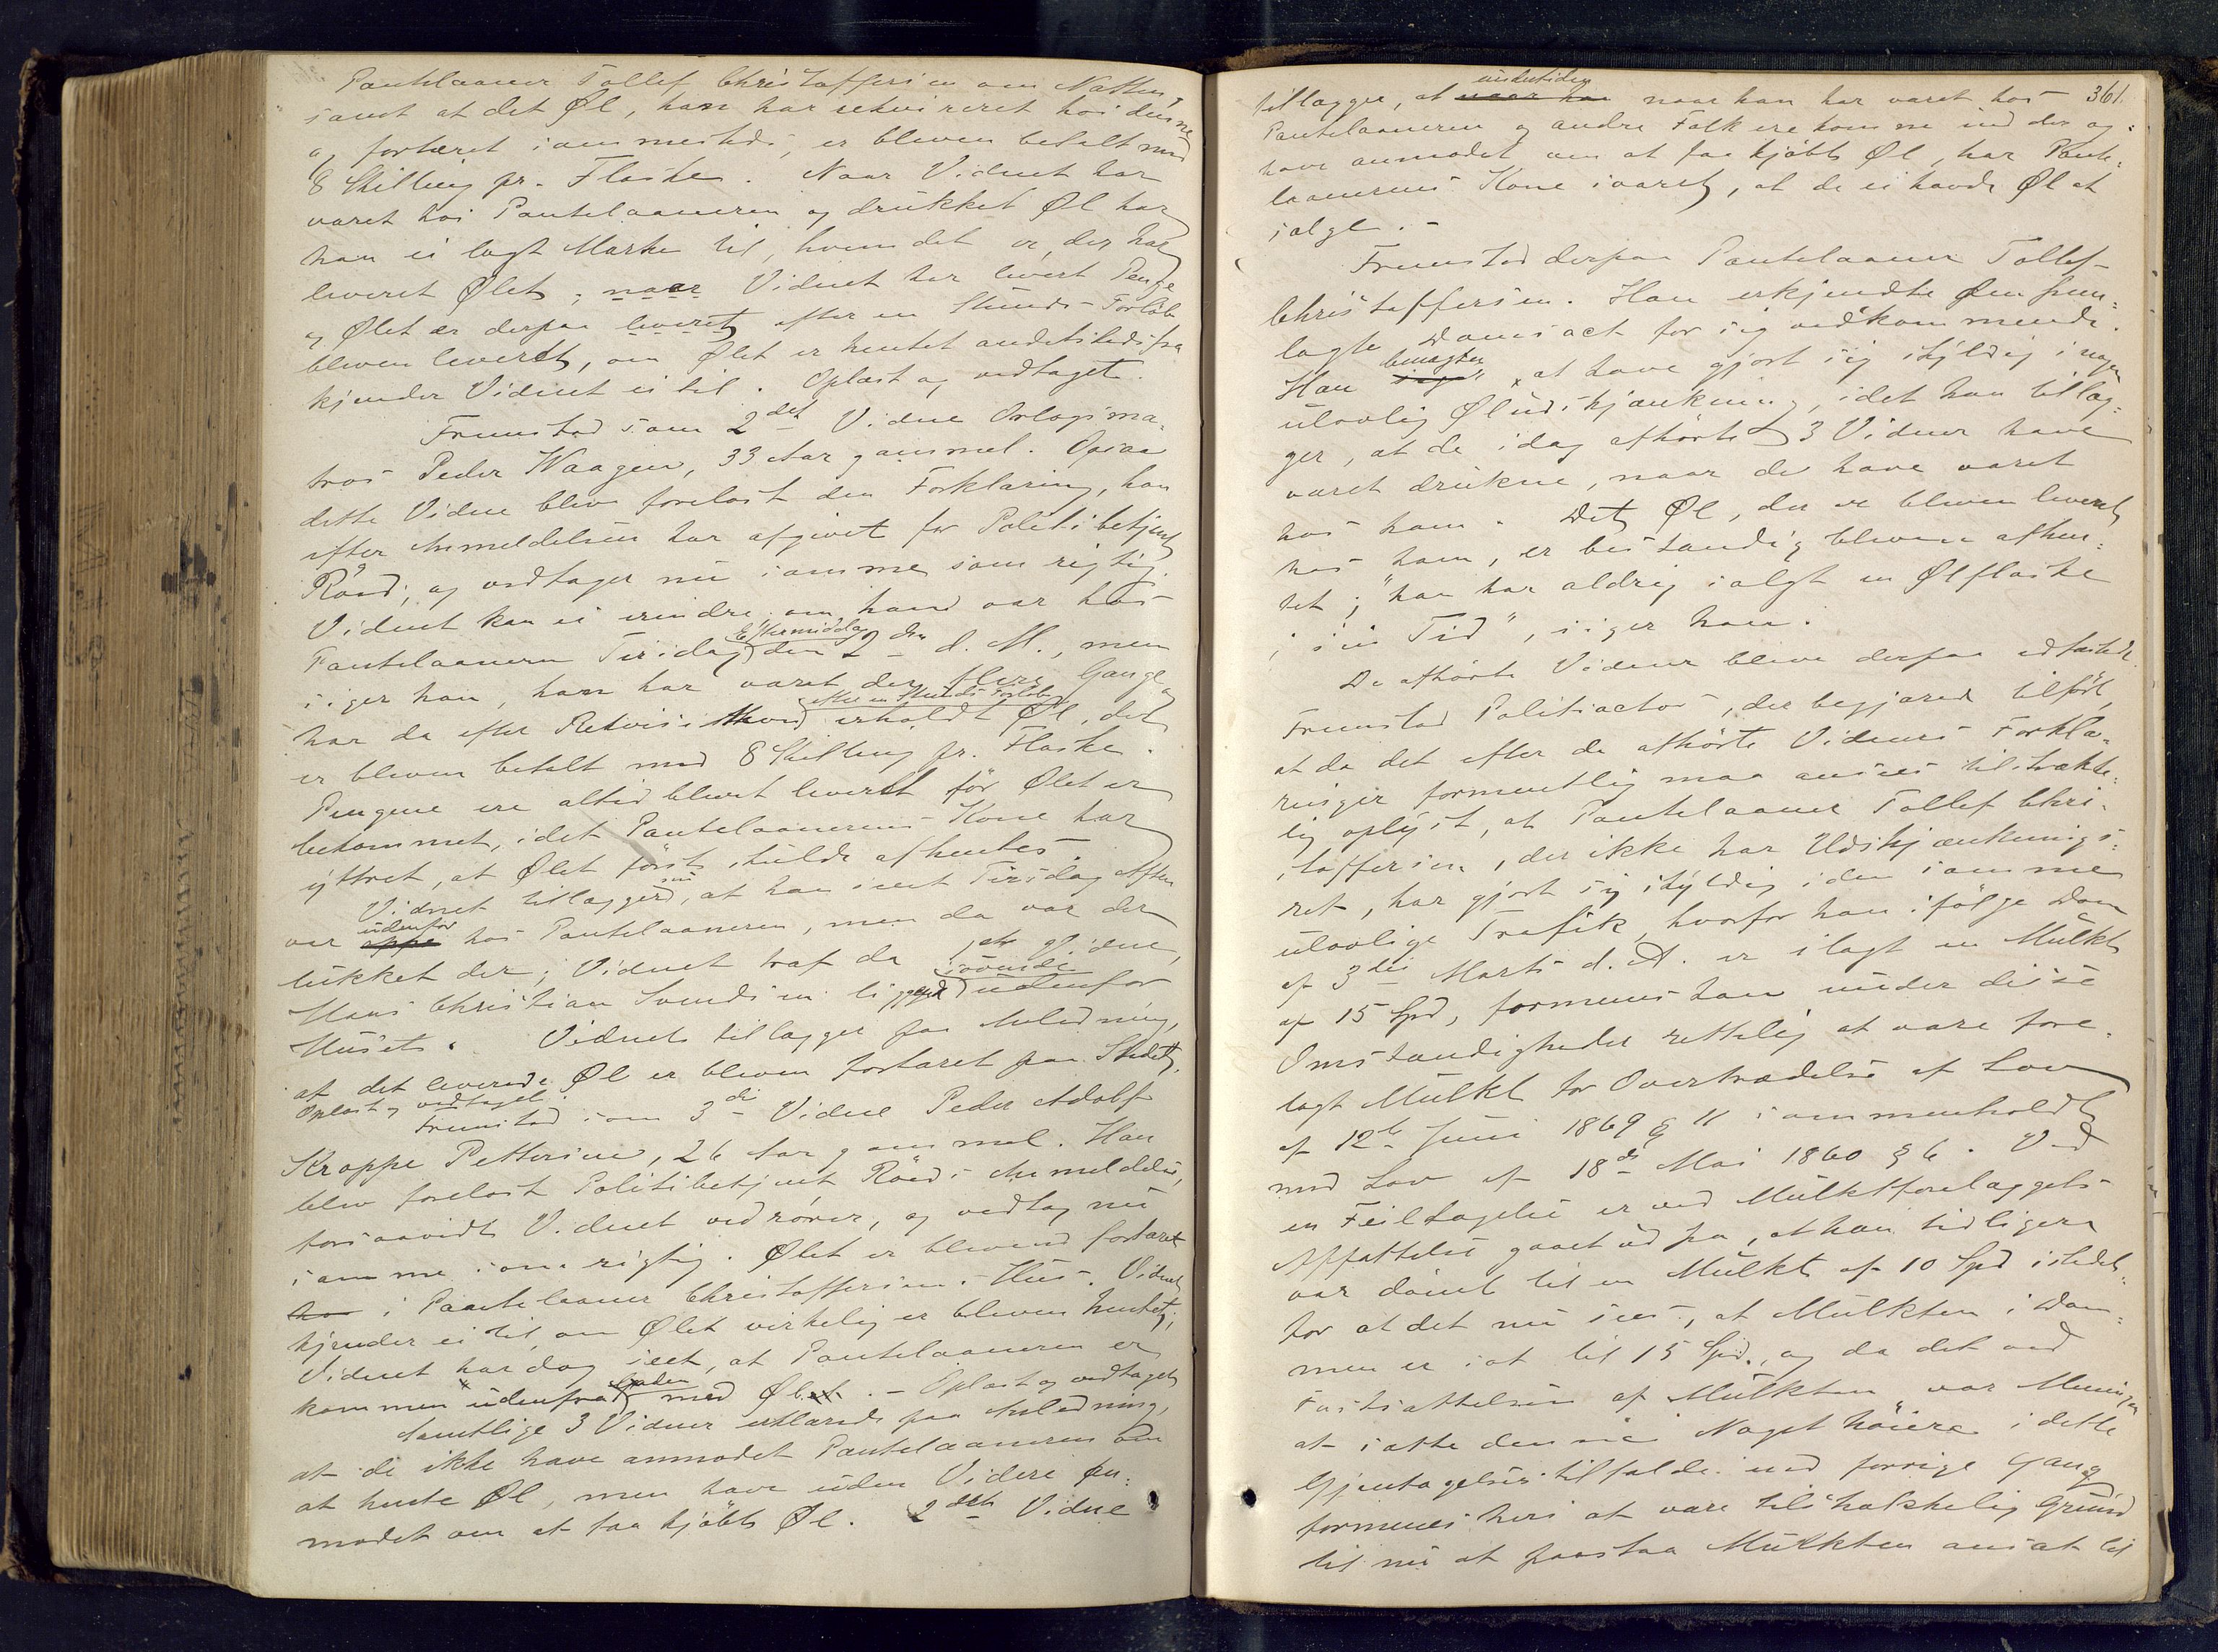 Pantelaaner Tollef Christoffersen om Natten,
samt at det Øl, han har rekvireret hos denne
og fortæret sammesteds, er bleven betalt med
8 Skilling pr. Flaske. Naar Vidnet har
været hos Pantelaaneren og drukket Øl har
han ei lagt Mærke til, hvem det er, der har
leveret Øllet; naar Vidnet har levert Penge
og Ølet er derpaa leveret efter en Stunds Forløb
bleven leveret, om Ølet er hentet andetsteds fra
kjender Vidnet ei til. Oplæst og vedtaget.
Fremstod som 2det Vidne Orlogsma-
tros Peder Waagen, 33 Aar gammel. Ogsaa
dette Vidne blev forelæst den Forklaring, han
efter Anmeldelsen har afgivet for Politibetjent
Röed, og vedtager nu samme som rigtig.
Vidnet kan ei erindre om han var hos
Eftermiddag
Pantelaaneren Tirsdag den 2den d. M., men
siger han, han har været der flere Gange og
efter en Stunds Forløb
har da efter Rekvisition erholdt Øl, det
er bleven betalt med 8 Skilling pr. Flaske.
Pengene ere altid blevet leveret før Ølet er
bekommet, idet Pantelaanerens Kone har
yttret, at Ølet først skulde afhentes.
Vidnet tillægger, at han sent Tirsdag Aften
udenfor
var oppe hos Pantelaaneren, men da var der
lukket der; Vidnet traf da
sovende
Hans Christian Svendsen liggende udenfor
Huset. Vidnet tillægger paa Anledning,
at det leverede Øl er bleven fortæret paa Stedet.
Oplæst og vedtaget.
Fremstod som 3die Vidne Peder Adolf
Kroppe Pettersen, 26 Aar gammel. Han
blev forelæst Politibetjent Röeds Anmeldelse,
forsaavidt Vidnet vedrører, og vedtog nu
samme som rigtig. Ølet er blevend fortæret
hos i Pantelaaner Christoffersens Hus. Vidnet
kjender ei til, om Ølet virkelig er bleven hentet;
Vidnet har dog seet, at Pantelaaneren er
Gaden
kommen udenfra med Ølet. – Oplæst og vedtaget
Samtlige 3 Vidner erklærede paa Anledning,
at de ikke have anmodet Pantelaaneren om
at hente Øl, men have uden Videre an-
modet om at faa kjøbt Øl. 2det Vidne
361.
undertiden
tillægger, at naar han naar han har været hos
Pantelaaneren og andre Folk ere komne ind der og
have anmodet om at faa kjøbt Øl, har Pante-
laanerens Kone svaret, at de ei havde Øl at
sælge. –
Fremstod derpaa Pantelaaner Tollef
Christoffersen. Han erkjendte den frem-
lagte Domsact for sig vedkommende.
benægter
Han siger at have gjort sig skyldig i nogen
ulovlig Øludskjænkning, idet han tillæg-
ger, at de idag afhørte 3 Vidner have
været drukne, naar de have været
hos ham. Det Øl, der er bleven levert
hos ham, er bestandig bleven afhen-
tet; "han har aldrig solgt en Ølflaske
i sin Tid", siger han.
De afhørte Vidner bleve derpaa edfæstede.
Fremstod Politiactor, der begjærede tilført,
at da det efter de afhørte Vidners Forkla-
ringer formentlig maa ansees tilstrække-
lig oplyst, at Pantelaaner Tollef Chri-
stoffersen, der ikke har Udskjænknings-
ret, har gjort sig skyldig i den samme
ulovlige Trafik, hvorfor han ifølge Dom
af 3die Marts d. A. er ilagt en Mulkt
af 15 Spd, formenes han under disse
Omstændigheder rettelig at være fore-
lagt Mulkt for Overtrædelse af Lov
af 12te Juni 1869 § 11 sammenholdt
med Lov af 18de Mai 1860 § 6. Ved
en Feiltagelse er ved Mulktforelæggets
Affattelse gaaet ud fra, at han tidligere
var dømt til en Mulkt af 10 Spd istedet-
for at det nu sees, at Mulkten i Dom-
men er sat til 15 Spd., og da det ved
Fastsættelsen af Mulkten var Meningen
at sætte denne Noget høiere i dette
Gjentagelsestilfælde end forrige Gang
formenes heri at være tilstrækkelig Grund
til nu at paastaa Mulkten ansat til